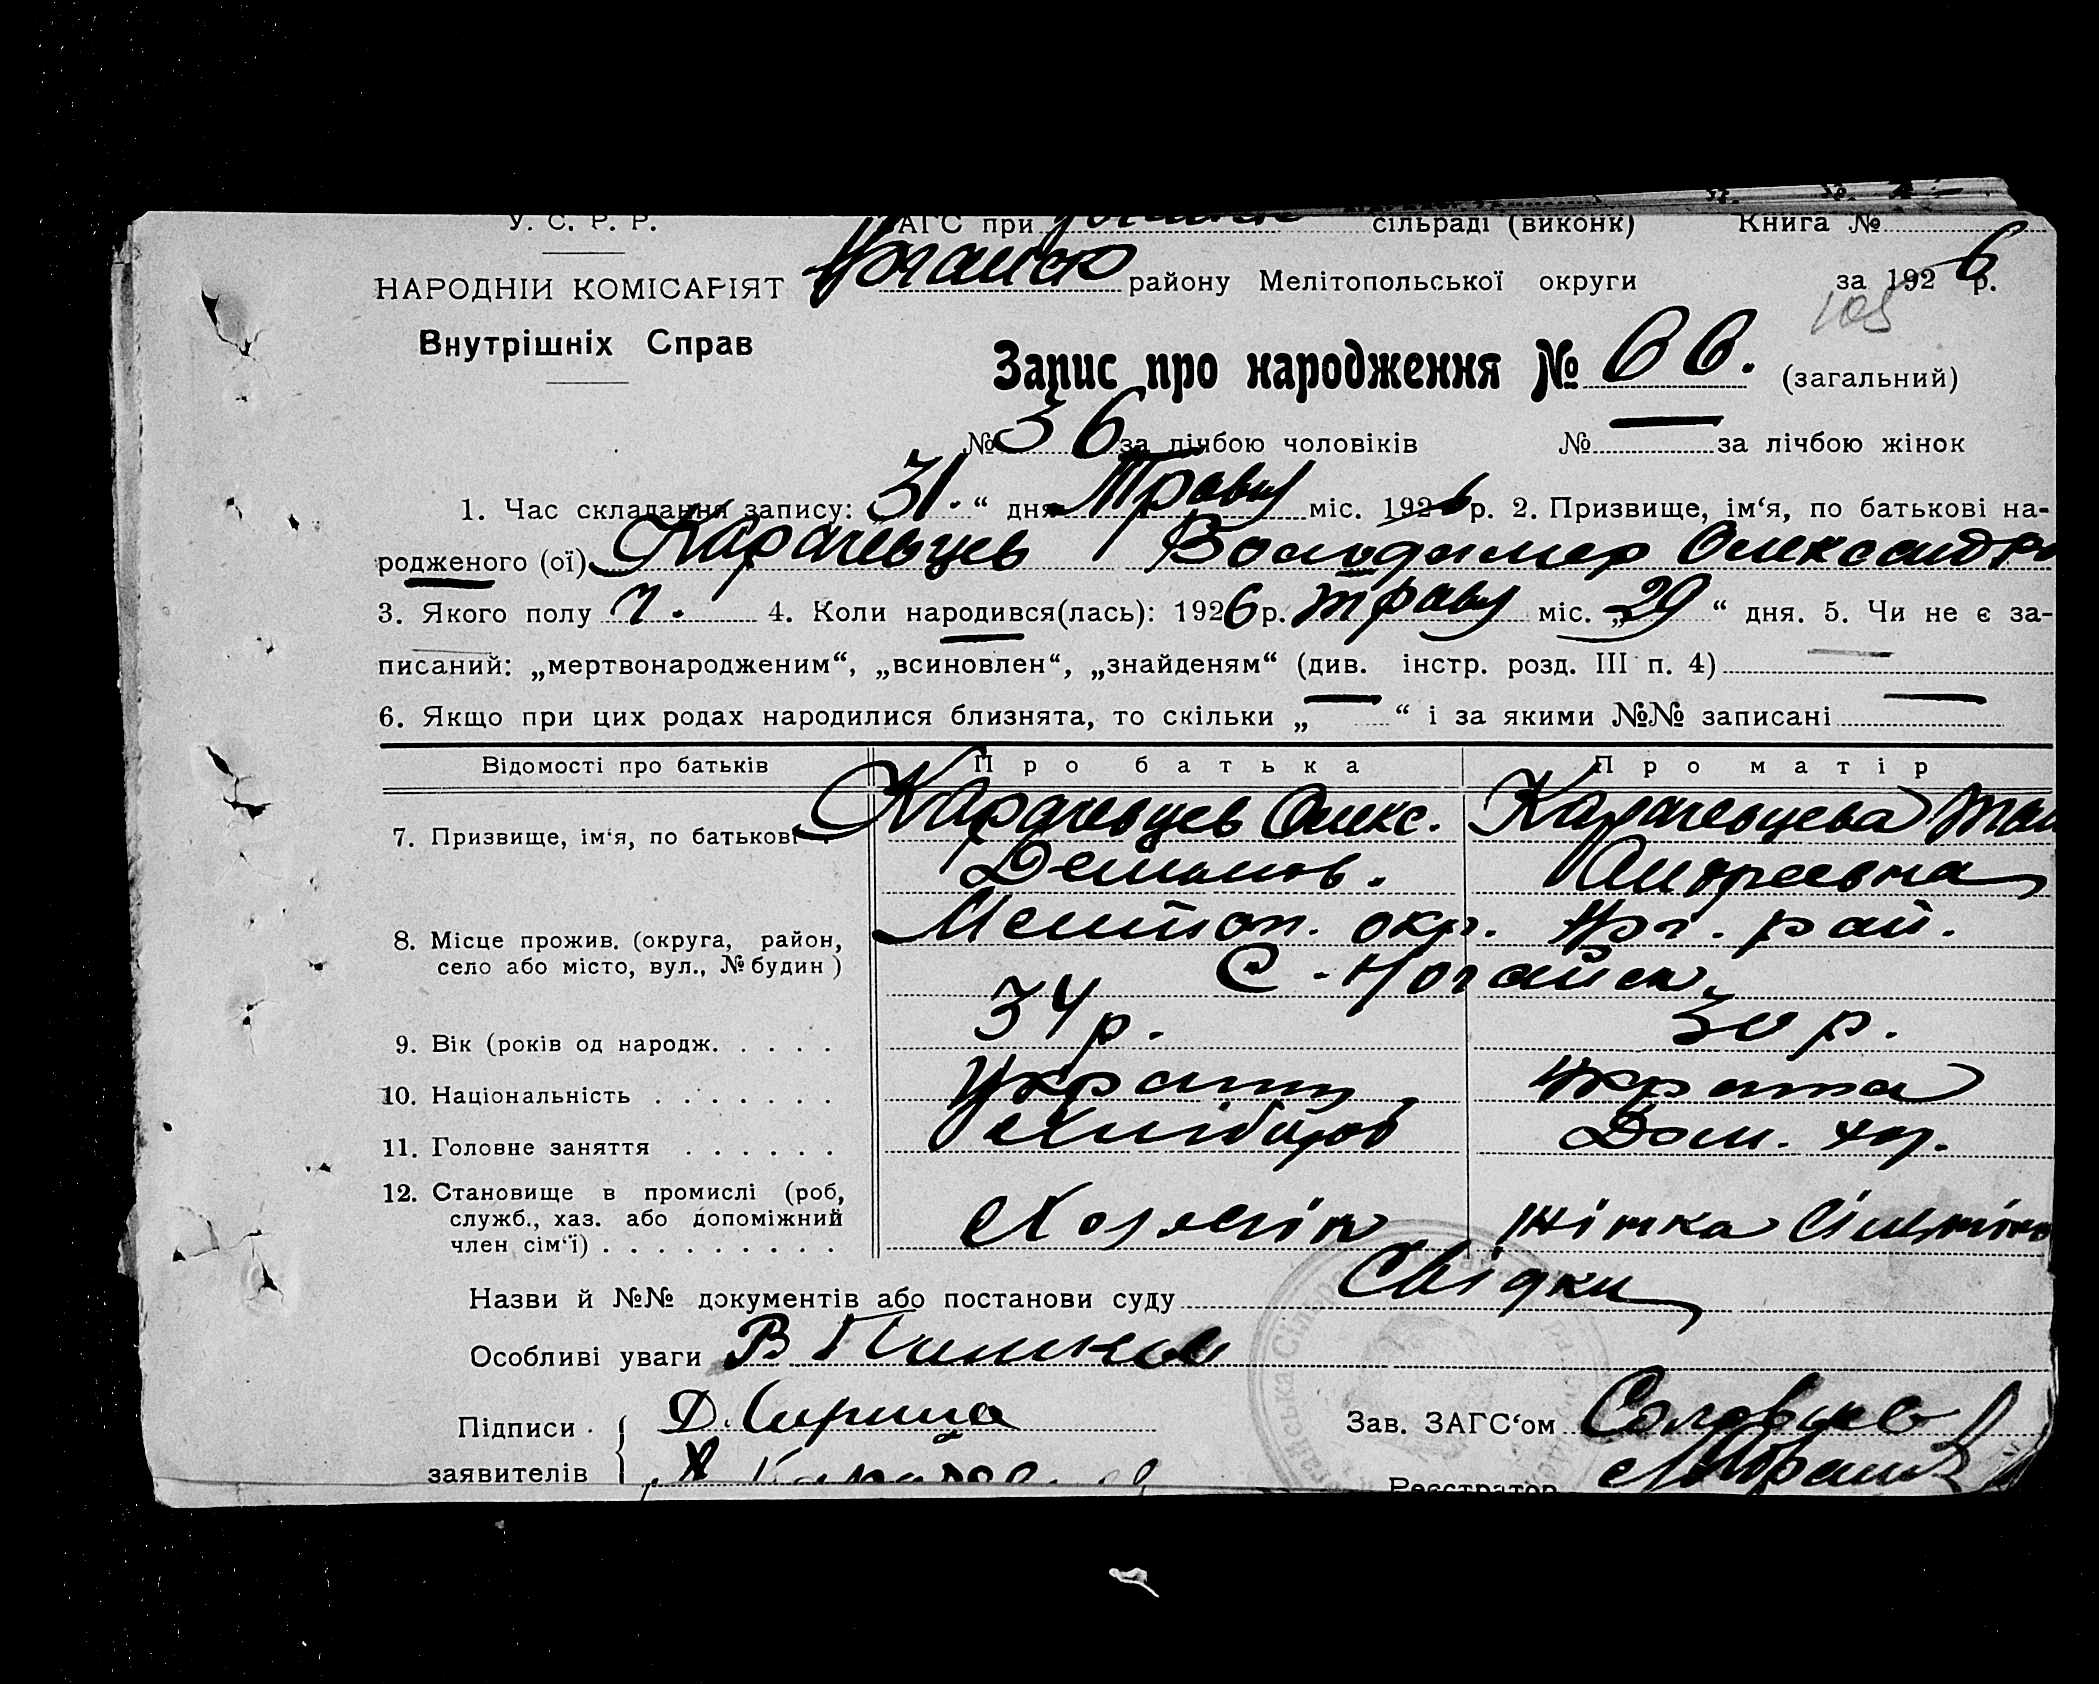 У. С. Р. Р. АГС при сільраді (виконк) Книга №
НАРОДНІЙ КОМІСАРІЯТ Ногайск району Мелітопольської округи за 1926 р.
105
Внутрішніх Справ
Запис про народження № 66. (загальний)
№ 36 за лічбою чоловіків № — за лічбою жінок
1. Час складання запису: 31. “ дня Травн міс. 1926 р. 2. Призвище, ім‘я, по батькові на-
родженого (ої) Карачевцев Володимер Олександро
3. Якого полу ч. 4. Коли народився(лась): 1926 р. травн міс. „29“ дня. 5. Чи не є за-
писаний: „мертвонародженим“, „всиновлен“, „знайденям“ (див. інстр. розд. III п. 4) —
6. Якщо при цих родах народилися близнята, то скільки „—“ і за якими №№ записані —
Відомості про батьків Про батька Про матір
7. Призвище, ім‘я, по батькові Карачевцев Олекс. Карачевцева
Демьянов. Андреевна
8. Місце прожив. (округа, район, Мелитоп. окр. Ног. рай.
село або місто, вул., № будин) С. Ногайск.
9. Вік (років од народж. . . . . 34 р. 30 р.
10. Національність . . . . . . .
11. Головне заняття . . . . . . Хлібороб Дом. хоз.
12. Становище в промислі (роб,
служб., хаз. або допоміжний Хозяєін
член сім‘ї) . . . . . . . . .
Назви й №№ документів або постанови суду Свідки
Особливі уваги В
Підписи Д. Сирица Зав. ЗАГС‘ом Соловьев
заявителів Реєстратор